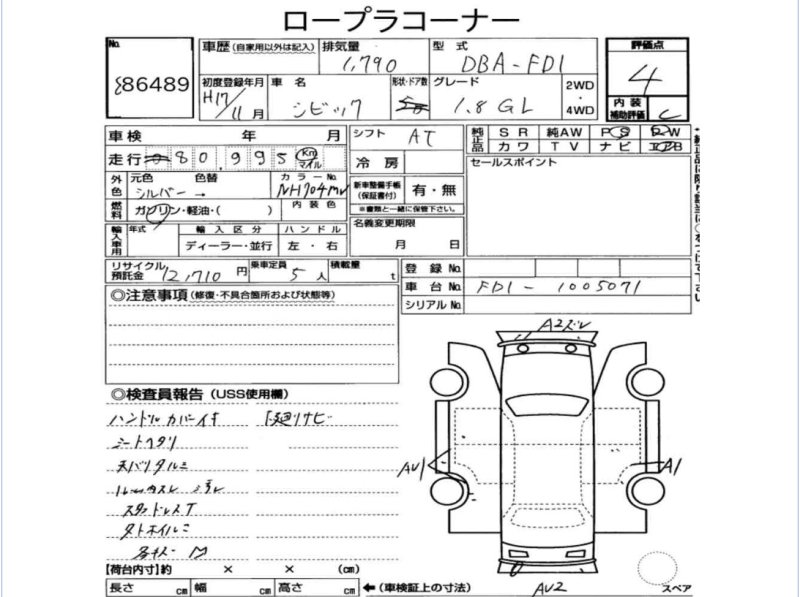 ロープラコーナー
No.
86489
車歴 (自家用以外は記入)
排気量
1,790
型 式
DBA-FD1
評価点
4
初度登録年月
H17/11月
車 名
シビック
形状・ドア数
グレード
1.8 GL
2WD
・
4WD
内 装
補助評価
C
車検 年 月
シフト AT
純正品
SR 純AW PS PW
カワ TV ナビ エアB
走行 80,995 Km マイル
冷 房
セールスポイント
外色
元色 色替
シルバー →
カラーNo.
NH704m
新車整備手帳
(保証書付)
有・無
※書類と一緒に保管下さい。
燃料
ガソリン・軽油・( )
内 装 色
名義変更期限
月 日
輸入車用
年式
輸 入 区 分
ディーラー・並行
ハ ン ド ル
左 ・ 右
リサイクル預託金 12,710 円
乗車定員 5 人
積載量 t
登 録 No.
車 台 No. FD1-1005071
シリアルNo.
◎注意事項 (修復・不具合箇所および状態等)
A2ズレ
◎検査員報告 (USS使用欄)
ハンドルカバーイキ
下廻りサビ
シートヘタリ
天バリタルミ
スタッドレスT
AU1
A1
【荷台内寸】約 × × (cm)
長さ cm 幅 cm 高さ cm
←(車検証上の寸法)
AU2
スペア